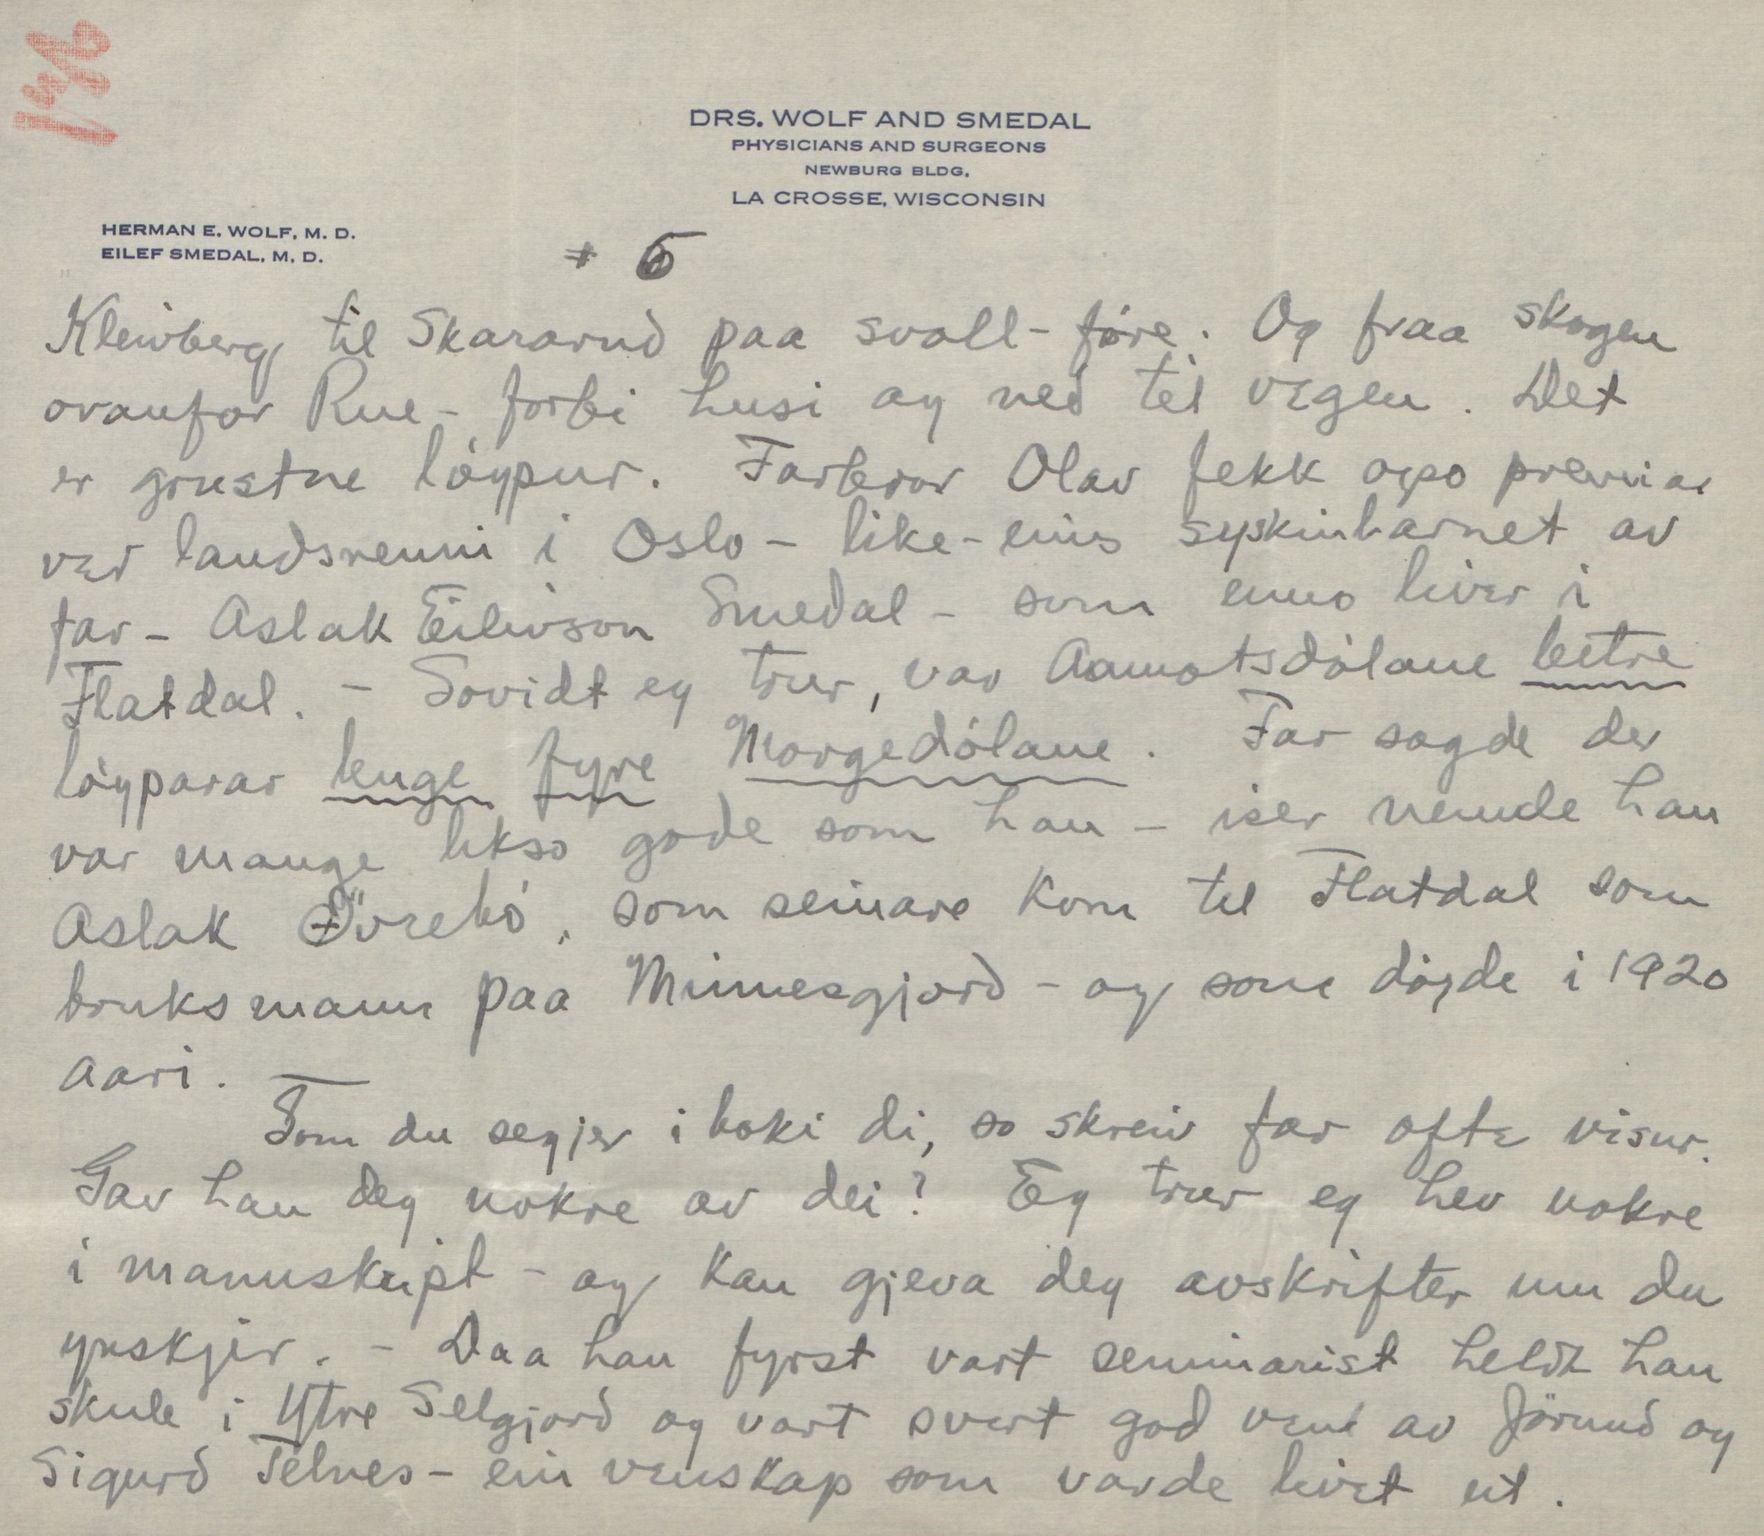 DRS. WOLF AND SMEDAL
PHYSICIANS AND SURGEONS
NEWBURG BLDG.
LA CROSSE, WISCONSIN
HERMAN E. WOLF, M. D.
EILEF SMEDAL, M. D.
# 6
Kleivberg til Skararud paa svall-före. Og fraa skogen
ovanfor Rue - forbi husi og ned til vegen. Det
er grustne löypur. Farbror Olav fekk ogso premiar
ved landsrenni i Oslo - like-eins syskinbarnet av
far - Aslak Eilivson Smedal - som enno liver i
Flatdal. - Sovidt eg trur, var Aamotsdölane betre
löyparar lenge fyre Morgedölane. Far sagde der
var mange likso gode som han - iser nemde han
Aslak Övrebö, som seinare kom til Flatdal som
bruksmann paa Minnesgjord - og som döyde i 1920
aari.
Som du segjer i boki di, so skreiv far ofte visur.
Gav han deg nokre av dei? Eg trur eg hev nokre
i manuskript - og kan gjeva deg avskrifter um du
ynskjer. - Daa han fyrst vart seminarist heldt han
skule i Ytre Selgjord og vart svert god ven av Jörund og
Sigurd Telnes - ein venskap som varde livet ut.